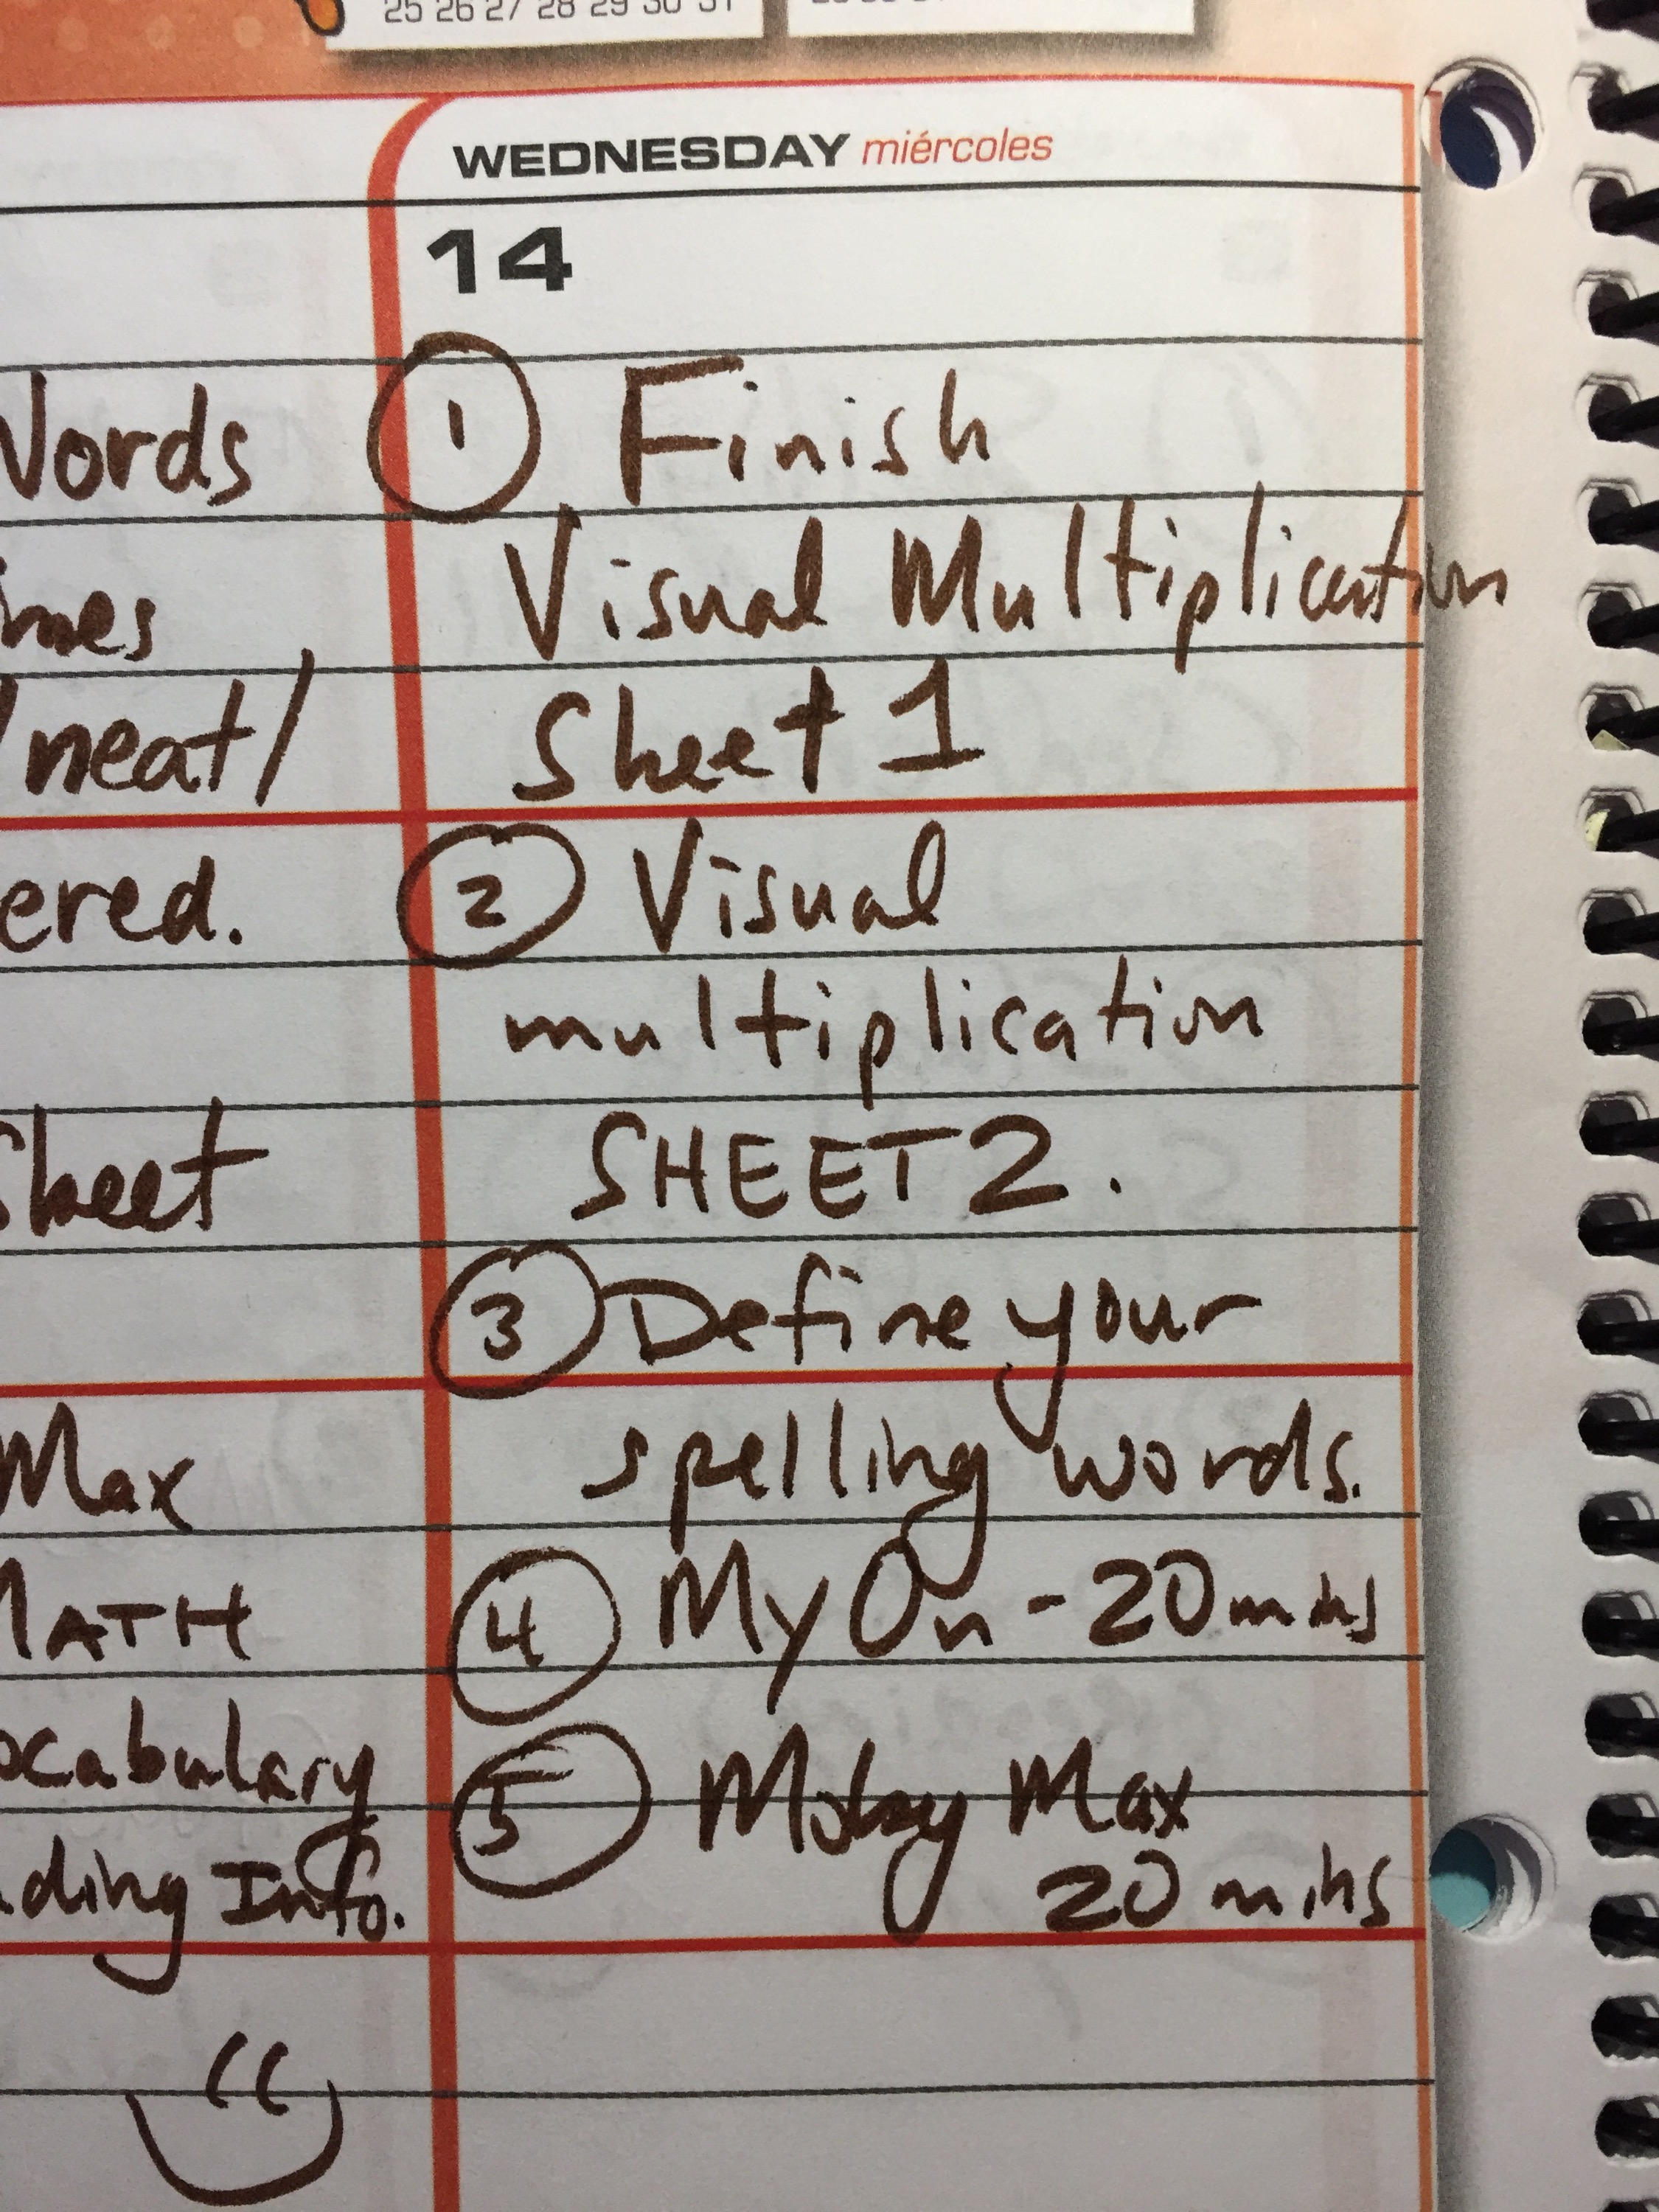 25 26 27 28 29 30 31
WEDNESDAY miércoles
14
Words
neat/
ered.
Sheet
Max
MATH
ocabulary
ding Info.
1 Finish
Visual Multiplication
Sheet 1
2 Visual
multiplication
SHEET 2.
3 Define your
spelling words.
4 My On - 20 mins
5 Moby Max
20 mins